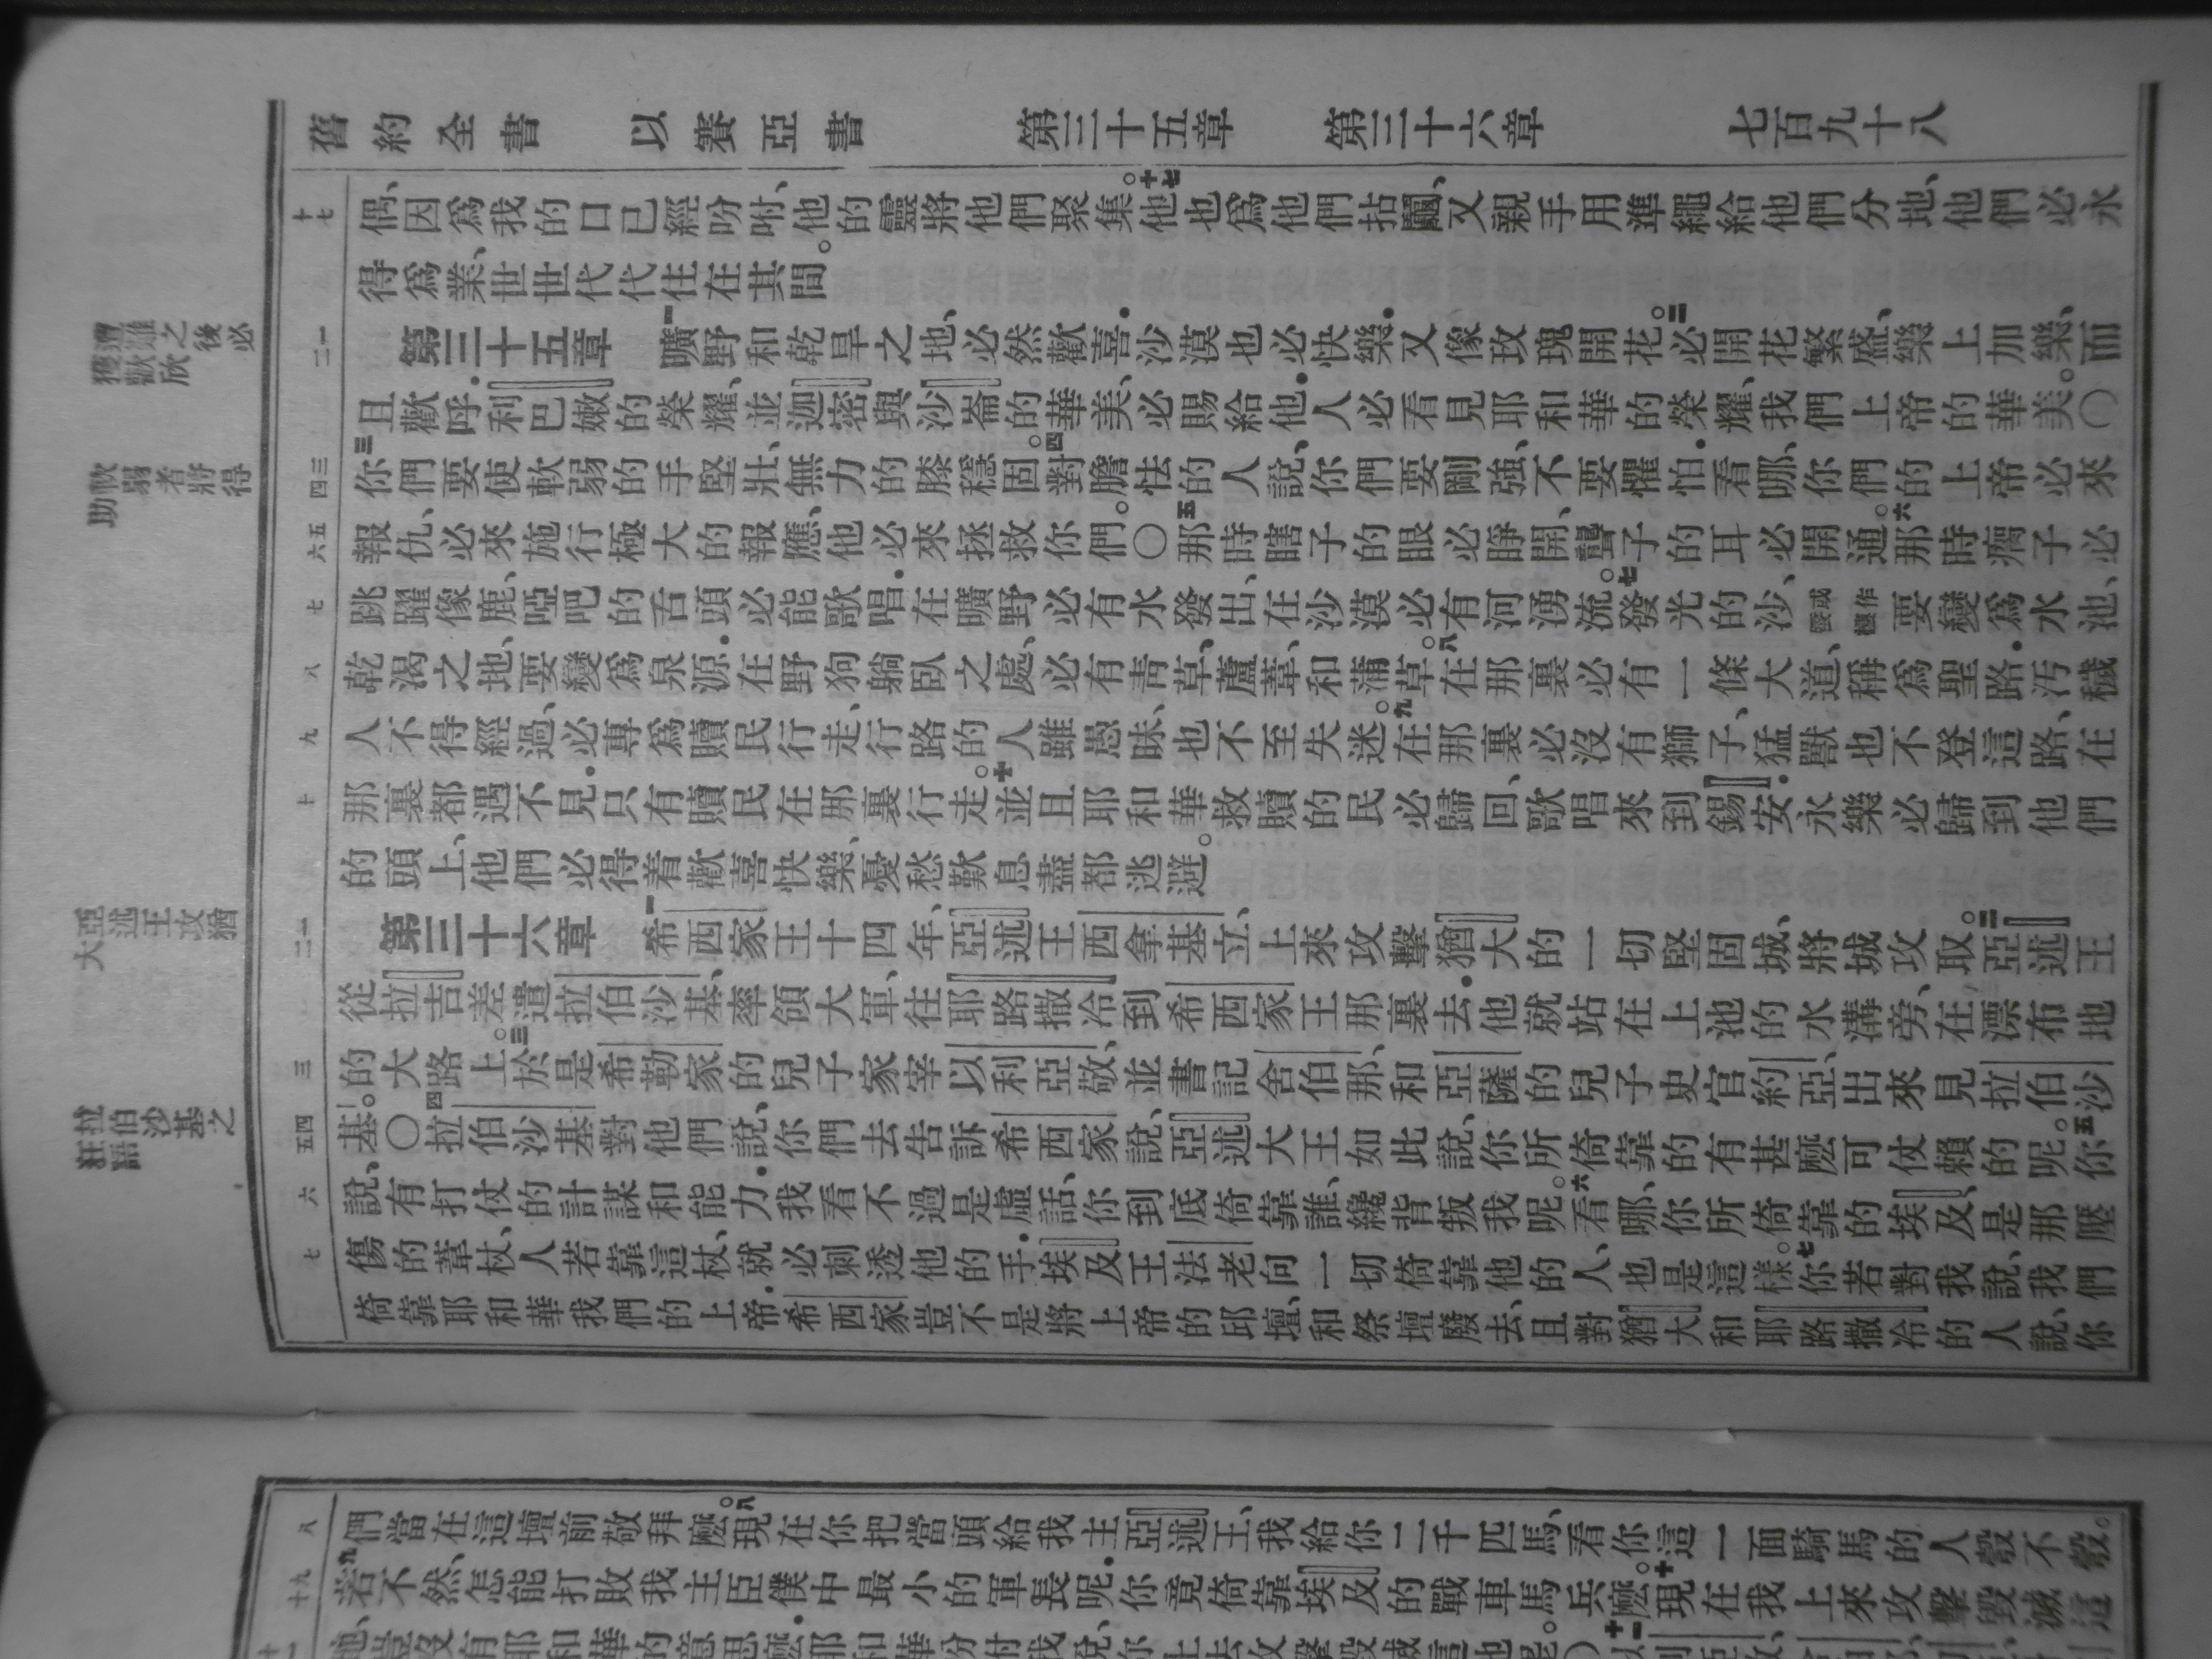 舊約全書 以賽亞書 第三十五章 第三十六章 七百九十八
十七
偶、因爲我的口已經吩咐、他的靈將他們聚集。十七他也爲他們拈鬮、又親手用準繩給他們分地、他們必永
得爲業、世世代代住在其間。
遭難之後必
獲歡欣
一二
第三十五章 一曠野和乾旱之地、必然歡喜.沙漠也必快樂.又像玫瑰開花。二必開花繁盛、樂上加樂、而
且歡呼.利巴嫩的榮耀、並迦密與沙崙的華美、必賜給他.人必看見耶和華的榮耀、我們上帝的華美。〇
軟弱者將得
助
三四
三你們要使軟弱的手堅壯、無力的膝穩固。四對膽怯的人說、你們要剛強、不要懼怕.看哪、你們的上帝必來
五六
報仇、必來施行極大的報應、他必來拯救你們。〇五那時瞎子的眼必睜開、聾子的耳必開通。六那時瘸子必
七
跳躍像鹿、啞吧的舌頭必能歌唱.在曠野必有水發出、在沙漠必有河湧流。七發光的沙、或作要變爲水池、
八
乾渴之地、要變爲泉源.在野狗躺臥之處、必有青草、蘆葦、和蒲草。八在那裏必有一條大道、稱爲聖路.汚穢
九
人不得經過、必專爲贖民行走、行路的人雖愚昧、也不至失迷。九在那裏必沒有獅子、猛獸也不登這路、在
十
那裏都遇不見.只有贖民在那裏行走。十並且耶和華救贖的民必歸回、歌唱來到錫安.永樂必歸到他們
的頭上、他們必得着歡喜快樂、憂愁歎息盡都逃避。
亞述王攻猶
大
一二
第三十六章 一希西家王十四年、亞述王西拿基立、上來攻擊猶大的一切堅固城、將城攻取。二亞述王
從拉吉差遣拉伯沙基、率領大軍、往耶路撒冷到希西家王那裏去.他就站在上池的水溝旁、在漂布地
三
的大路上。三於是希勒家的兒子家宰以利亞敬、並書記舍伯那、和亞薩的兒子史官約亞、出來見拉伯沙
拉伯沙基之
狂語
四五
基。〇四拉伯沙基對他們說、你們去告訴希西家說、亞述大王如此說、你所倚靠的有甚麼可仗賴的呢。五你
六
說、有打仗的計謀和能力.我看不過是虛話、你到底倚靠誰、纔背叛我呢。六看哪、你所倚靠的埃及、是那壓
七
傷的葦杖、人若靠這杖、就必刺透他的手.埃及王法老向一切倚靠他的人、也是這樣。七你若對我說、我們
倚靠耶和華我們的上帝.希西家豈不是將上帝的邱壇、和祭壇廢去、且對猶大和耶路撒冷的人說、你
八
們當在這壇前敬拜麼。八現在你把當頭給我主亞述王、我給你二千匹馬、看你這一面騎馬的人彀不彀。
九十
九若不然、怎能打敗我主臣僕中最小的軍長呢.你竟倚靠埃及的戰車馬兵麼。十現在我上來攻擊毀滅這
十一
地、豈沒有耶和華的意思麼.耶和華吩咐我說、你上去攻擊毀滅這地罷。〇十一以利亞敬、